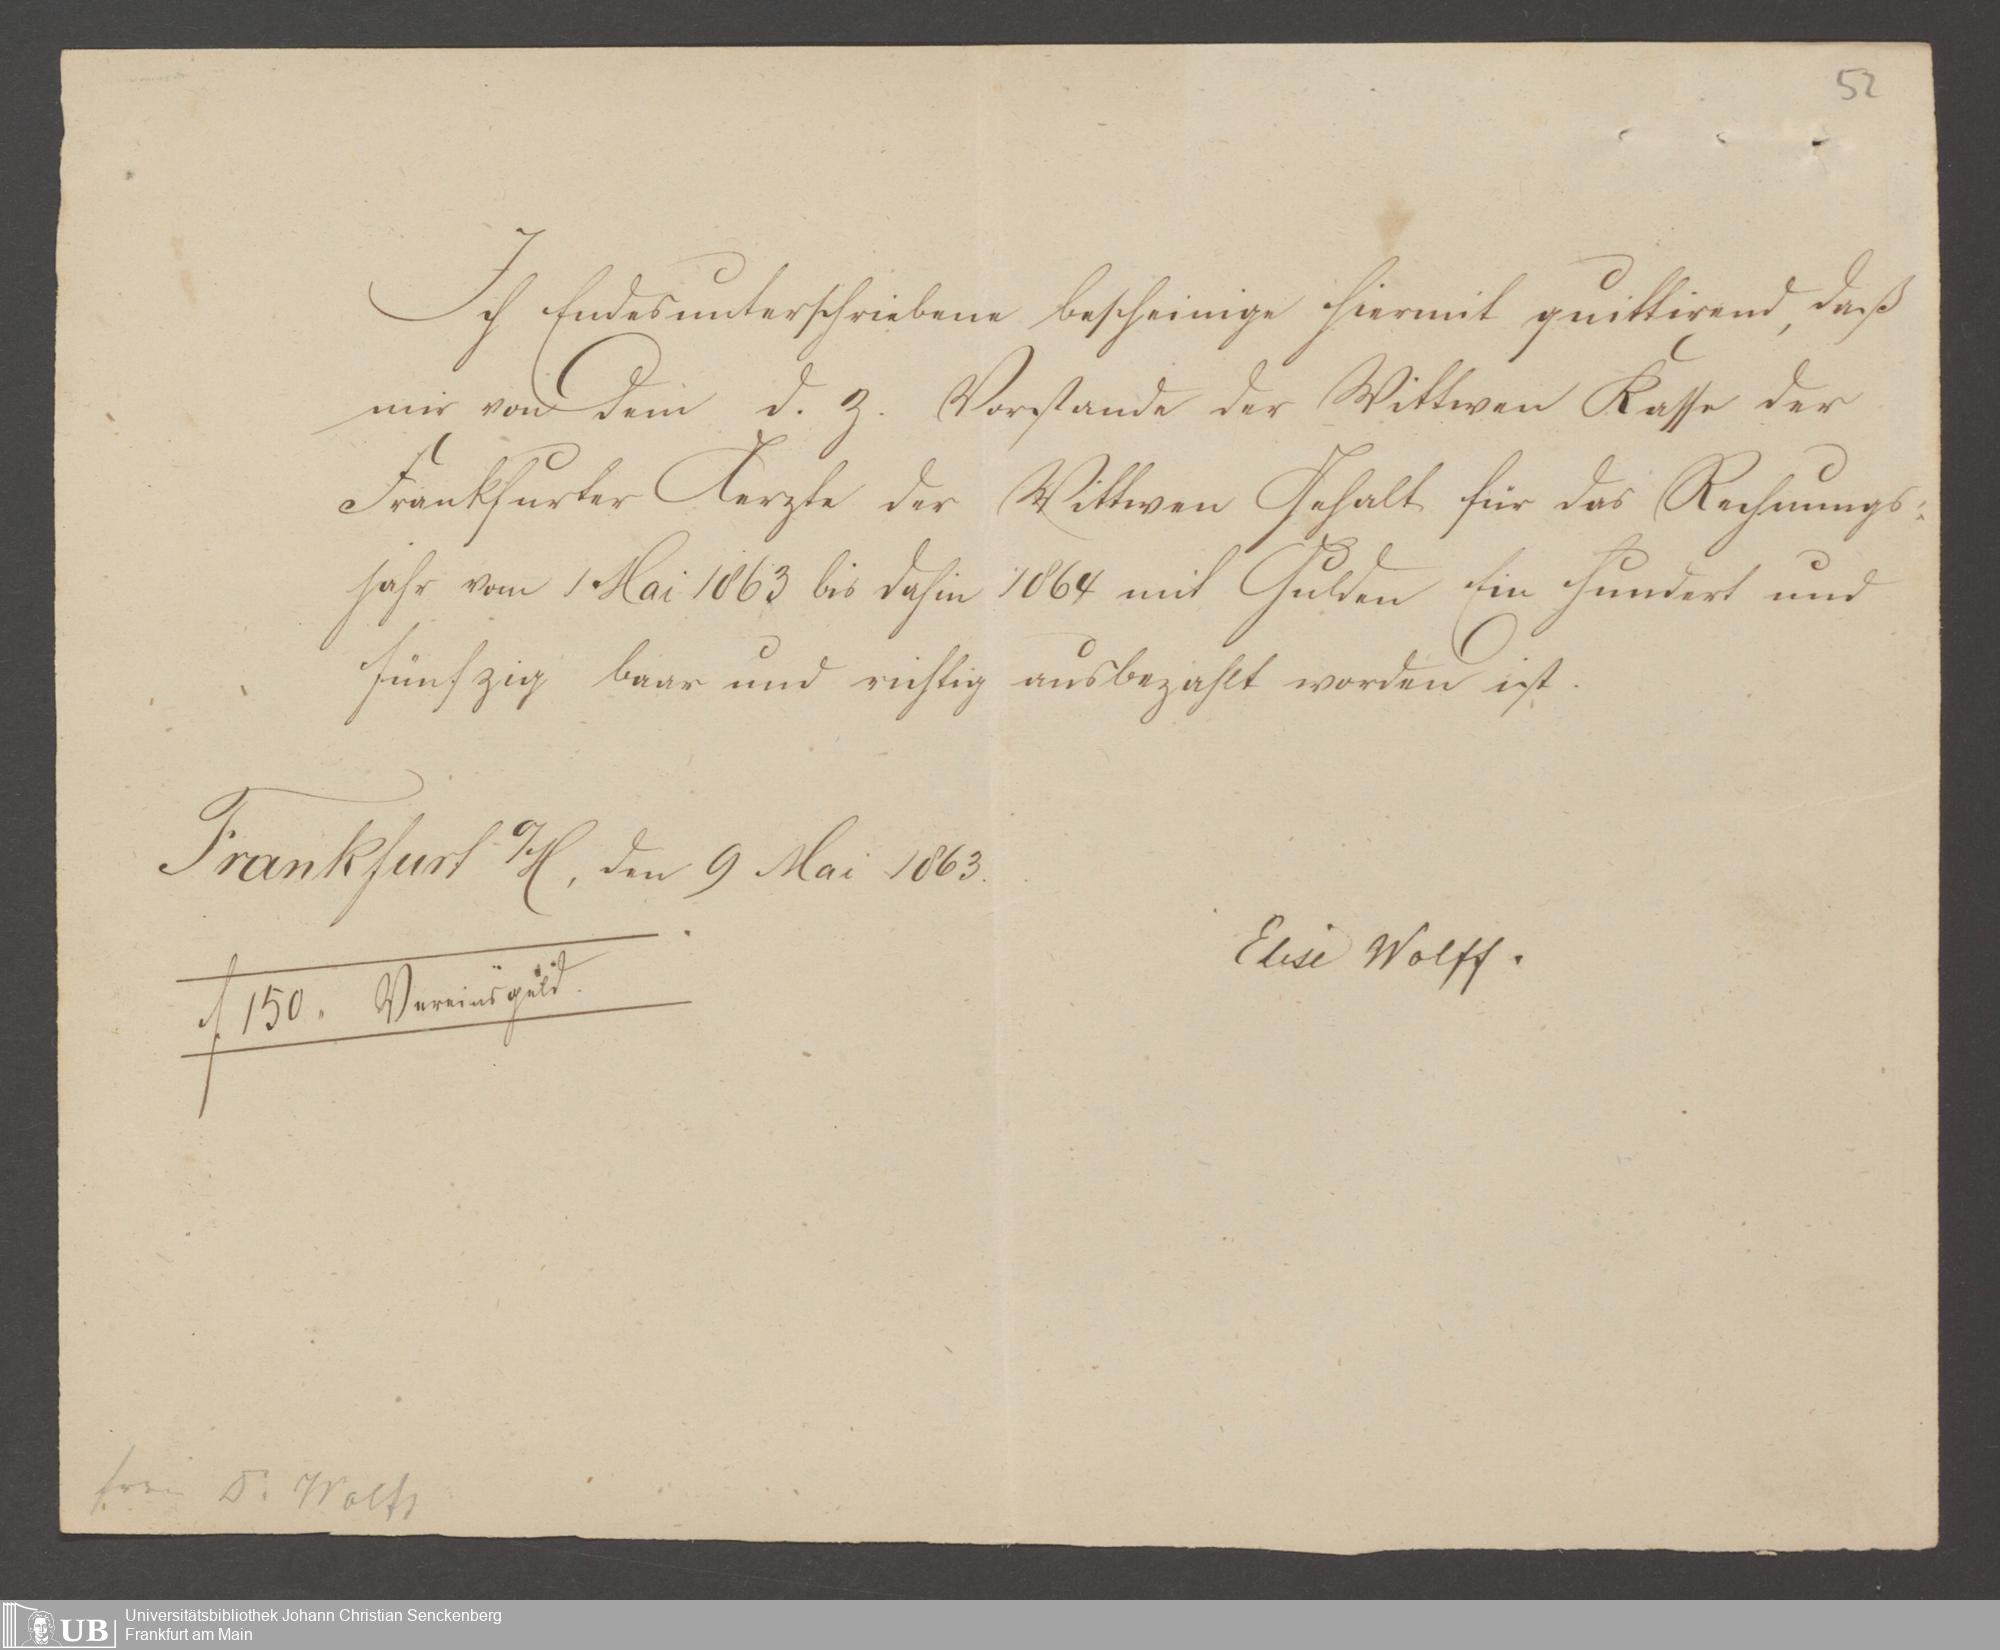 52
Ich Endesunterschriebene bescheinige hiermit quittirend, daß
mir von dem d. Z. Vorstande der Wittwen Kasse der
Frankfurter Aerzte der Wittwen Gehalt für das Rechnungs-
jahr vom 1 Mai 1863 bis dahin 1864 mit Gulden Ein Hundert und
fünfzig baar und richtig ausbezahlt worden ist.
Frankfurt a/M, den 9 Mai 1863.
Elise Wolff.
f 150. Vereinsgeld.
Dr. Wolff
UB
Universitätsbibliothek Johann Christian Senckenberg
Frankfurt am Main